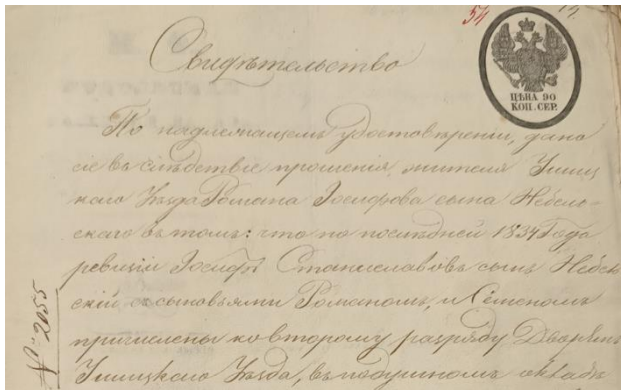 54
ЦѢНА 90
КОП. СЕР.
Свидѣтельство
По надлежащемъ удостовѣреніи, дано
сіе въ слѣдствіе прошенія жителя Ушиц
каго Уѣзда Романа Іосифова сына Небель-
скаго въ томъ: что по послѣдней 1834 Года
ревизіи Іосифъ Станиславовъ сынъ Небель
скій съ сыновьями Романомъ, и Семеномъ
причислены ко второму разряду Дворянъ
Ушицкаго Уѣзда, въ подушномъ окладѣ
№ 2055